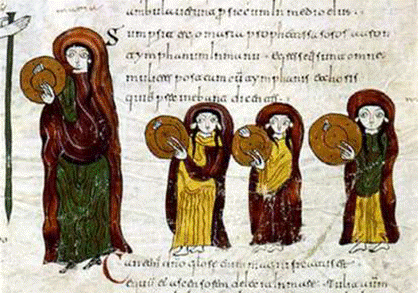 maria
ambulauerunt p siccum In medio eius
Sumpsit ergo maria prophetissa soror aaron
tympanum In manu. Egresseq sunt omnes
mulieres post eam cu tympanis et choris
quib precinebat dicens.
Cantem dno gloriose enim magnificatus est
equu et ascensorem deiecit In mare. Tulit autem